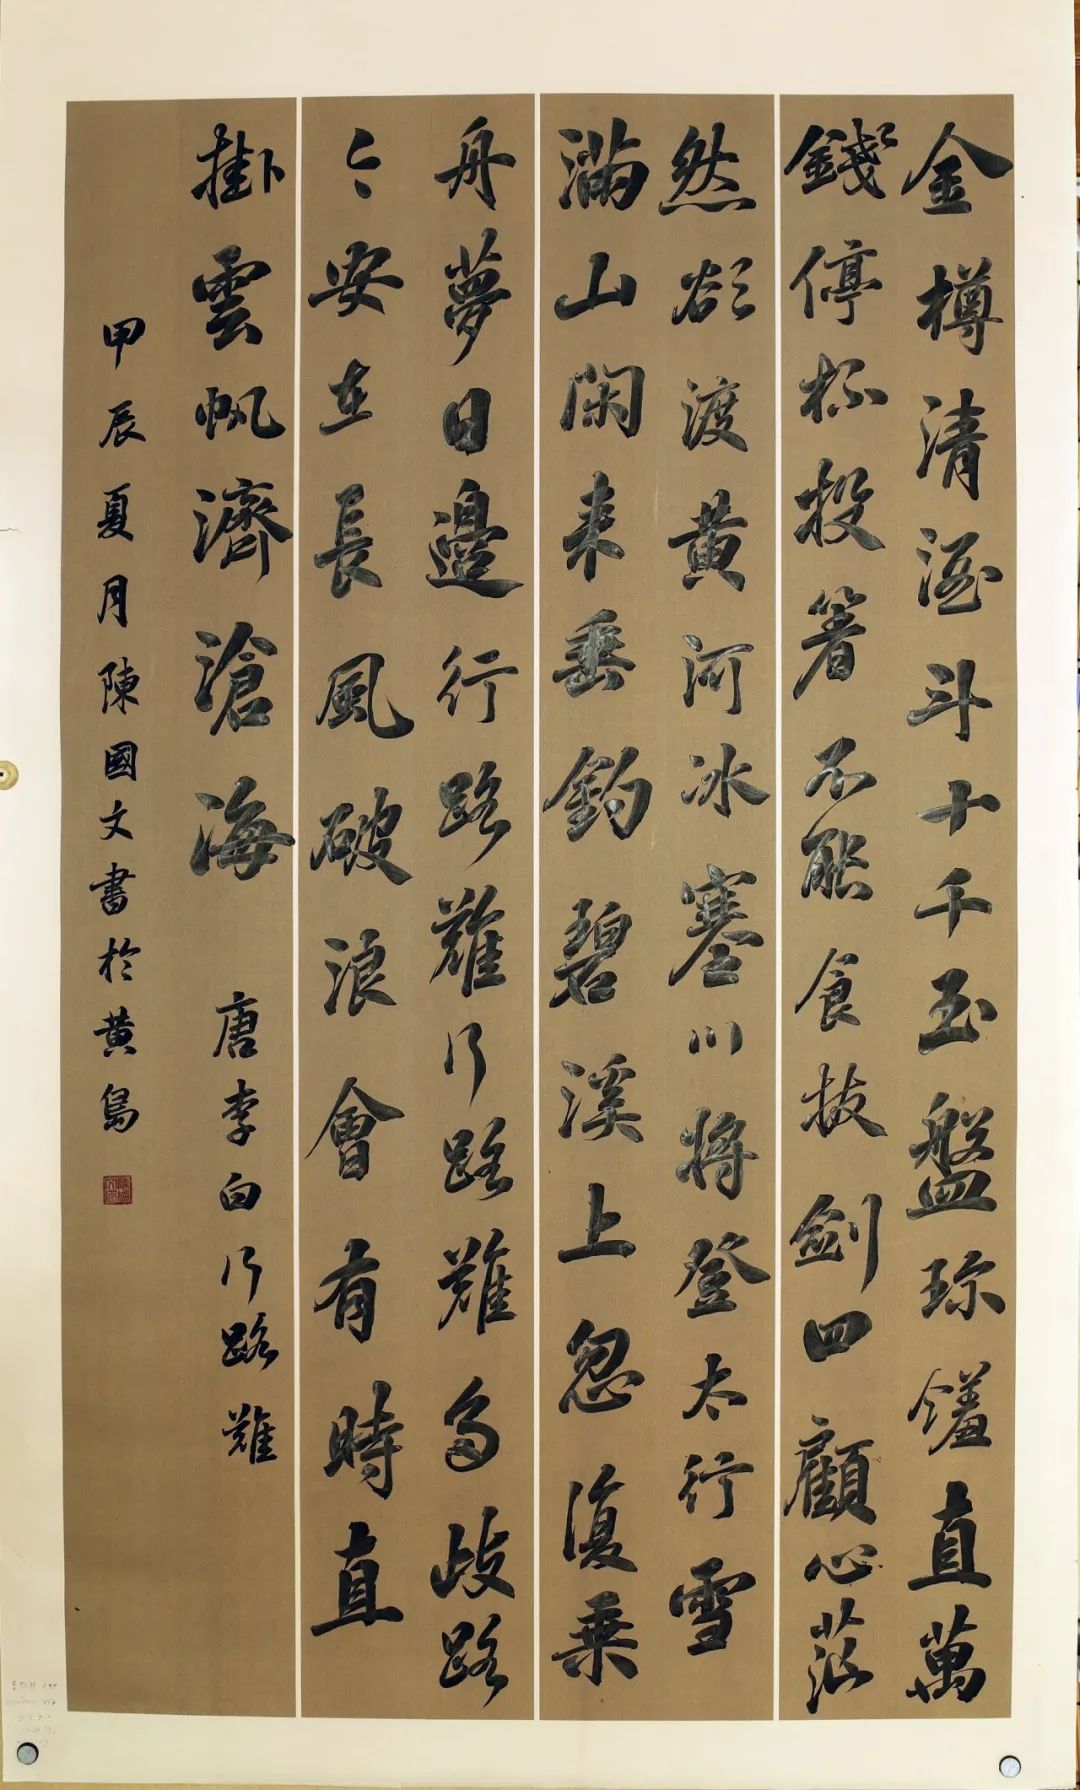 金樽清酒斗十千玉盤珍饈直萬
錢停杯投箸不能食拔劍四顧心茫
然欲渡黃河冰塞川將登太行雪
滿山閑來垂釣碧溪上忽復乘
舟夢日邊行路難行路難多歧路
今安在長風破浪會有時直
掛雲帆濟滄海 唐李白行路難
甲辰夏月陳國文書於黃島